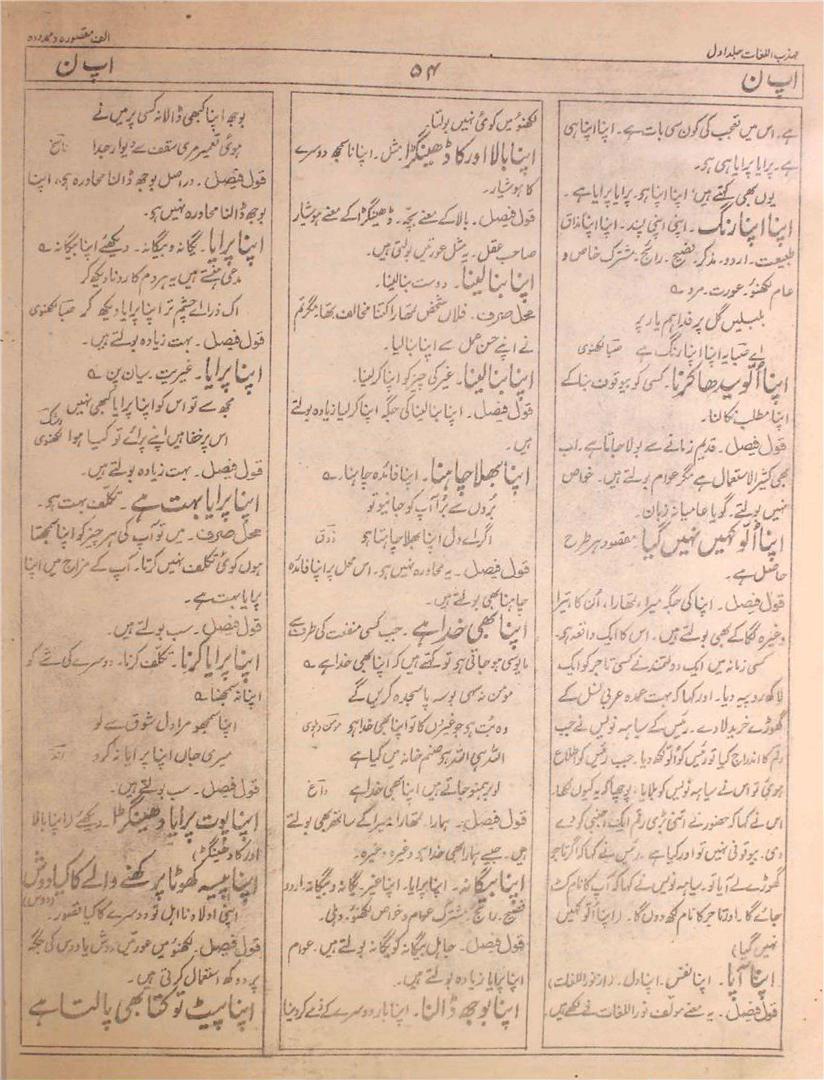 مہذب اللغات جلد اول
الف مقصورہ و ممدودہ
اپ ن
۵۴
اپ ن
ہے۔ اس میں تعجب کی کون سی بات ہے۔ اپنا اپنا ہی
ہے۔ پرایا پرایا ہی ہو۔
یوں بھی کہتے ہیں، اپنا اپنا ہو۔ پرایا پرایا ہے۔
اپنا اپنا رنگ۔ اپنی اپنی پسند۔ اپنا اپنا مذاق
طبیعت۔ اردو۔ مذکر۔ فصیح۔ رائج۔ مشترک خاص و
عام لکھنؤ۔ عورت۔ مرد ؎
بلبلیں گل پر فدا ہم یار پر
اے صبا یہ اپنا اپنا رنگ ہے صبا لکھنوی
اپنا اُلّو سیدھا کرنا۔ کسی کو بیوقوف بنا کے
اپنا مطلب نکالنا۔
قول فیصل۔ قدیم زمانے سے بولا جاتا ہے۔ اب
بھی کثیر الاستعمال ہے مگر عوام بولتے ہیں۔ خواص
نہیں بولتے۔ گویا عامیانہ زبان۔
اپنا اُلّو کہیں نہیں گیا۔ مقصود ہر طرح
حاصل ہے۔
قول فیصل۔ اپنا کی جگہ میرا، تمھارا، اُن کا، تیرا
وغیرہ لگا کے بھی بولتے ہیں۔ اس کا ایک واقعہ ہو۔
کسی زمانہ میں ایک دولتمند نے کسی تاجر کو ایک
لاکھ روپیہ دیا۔ اور کہا کہ بہت عمدہ عربی النسل کے
گھوڑے خرید لا دے۔ رئیس کے سیاہہ نویس نے جب
رقم کا اندراج کیا تو رئیس کو اُلّو لکھ دیا۔ جب رئیس کو اطلاع
ہوئی تو اس نے سیاہہ نویس کو بلایا، پوچھا کہ یہ کیوں لکھا۔
اس نے کہا کہ حضور نے اتنی بڑی رقم ایک اجنبی کو دے
دی۔ بیوقوفی نہیں تو اور کیا ہے۔ رئیس نے کہا کہ اگر تاجر
گھوڑے لے آیا تو۔ سیاہہ نویس نے کہا کہ آپ کا نام کٹ
جائے گا۔ اور تاجر کا نام لکھ دوں گا۔ (اپنا اُلّو کہیں
نہیں گیا)
اپنا آپا۔ اپنا نفس۔ اپنا دل۔ (از نور اللغات)
قول فیصل۔ یہ معنے مولف نور اللغات نے لکھے ہیں۔
لکھنؤ میں کوئی نہیں بولتا۔
اپنا بالا اور کا ڈھینگڑا۔ مثل۔ اپنا ناسمجھ دوسرے
کا ہوشیار۔
قول فیصل۔ بالا کے معنے بچّہ۔ ڈھینگڑا کے معنے ہوشیار
صاحب عقل۔ یہ مثل عورتیں بولتی ہیں۔
اپنا بنا لینا۔ دوست بنا لینا۔
محل صرف۔ فلاں شخص تمھارا کتنا مخالف تھا، مگر تم
نے اپنے حسن عمل سے اپنا بنا لیا۔
اپنا بنا لینا۔ غیر کی چیز کو اپنا کر لینا۔
قول فیصل۔ اپنا بنا لینا کی جگہ اپنا کر لیا زیادہ بولتے
ہیں۔
اپنا بھلا چاہنا۔ اپنا فائدہ چاہنا۔ ؎
بُروں سے بُرا آپ کو جانیو تو
اگر اے دل اپنا بھلا چاہتا ہو ذوق
قول فیصل۔ یہ محاورہ نہیں ہو۔ اس محل پر اپنا فائدہ
چاہنا بھی بولتے ہیں۔
اپنا بھی خدا ہے۔ جب کسی منفعت کی طرف سے
مایوسی ہو جاتی ہو تو کہتے ہیں کہ اپنا بھی خدا ہے ؎
مومن نہ سہی بوسہ پا سجدہ کریں گے
وہ بت ہو جو غیروں کا تو اپنا بھی خدا ہو مومن دہلوی
اللہ ہی اللہ ہو صنم خانہ میں کیا ہے
لو برہمنو جاتے ہیں اپنا بھی خدا ہے داغ
قول فیصل۔ ہمارا، تمھارا، میرا کے ساتھ بھی بولتے
ہیں۔ جیسے ہمارا بھی خدا ہو وغیرہ وغیرہ۔
اپنا بیگانہ۔ اپنا پرایا۔ اپنا غیر۔ یگانہ و بیگانہ۔ اردو
فصیح۔ رائج۔ مشترک عوام و خواص لکھنؤ۔ دہلی۔
قول فیصل۔ جاہل بیگانہ کو بگانہ بولتے ہیں۔ عوام
اپنا پرایا زیادہ بولتے ہیں۔
اپنا بوجھ ڈالنا۔ اپنا بار دوسرے کے ذمے کر دینا
بوجھ اپنا کبھی ڈالا نہ کسی پر میں نے
ہوئی تعمیر مری سقف سے دیوار جدا ناسخ
قول فیصل۔ در اصل بوجھ ڈالنا محاورہ ہو، اپنا
بوجھ ڈالنا محاورہ نہیں ہو۔
اپنا پرایا۔ یگانہ و بیگانہ۔ دیکھئے اپنا بیگانہ ؎
مدعی ہنستے ہیں یہ ہر دم کا رونا دیکھ کر
اک ذرا اے چشم تر اپنا پرایا دیکھ کر صبا لکھنوی
قول فیصل۔ بہت زیادہ بولتے ہیں۔
اپنا پرایا۔ غیریت۔ بیان پن ؎
مجھ سے تو اس کو اپنا پرایا کبھی نہیں
اس پر خفا ہیں اپنے پرائے تو کیا ہوا لکھنوی
قول فیصل۔ بہت زیادہ بولتے ہیں۔
اپنا پرایا بہت ہے۔ تکلف بہت ہو۔
محل صرف۔ میں تو آپ کی ہر چیز کو اپنا سمجھتا
ہوں کوئی تکلف نہیں کرتا۔ آپ کے مزاج میں اپنا
پرایا بہت ہے۔
قول فیصل۔ سب بولتے ہیں۔
اپنا پرایا کرنا۔ تکلف کرنا۔ دوسرے کی شے کو
اپنا نہ سمجھنا ؎
اپنا سمجھو مرا دل شوق سے لو
میری جاں اپنا پرایا نہ کرو
قول فیصل۔ سب بولتے ہیں۔
اپنا پوت پرایا دھینگڑا۔ دیکھئے (اپنا بالا
اور کا ڈھینگڑا)
اپنا پیسہ کھوٹا پرکھنے والے کا کیا دوش
(دوس)
اپنی اولاد نا اہل تو دوسرے کا کیا قصور۔
قول فیصل۔ لکھنؤ میں عورتیں دوش یا دوس کی جگہ
پر دوکھ استعمال کرتی ہیں۔
اپنا پیٹ تو کتا بھی پالتا ہے